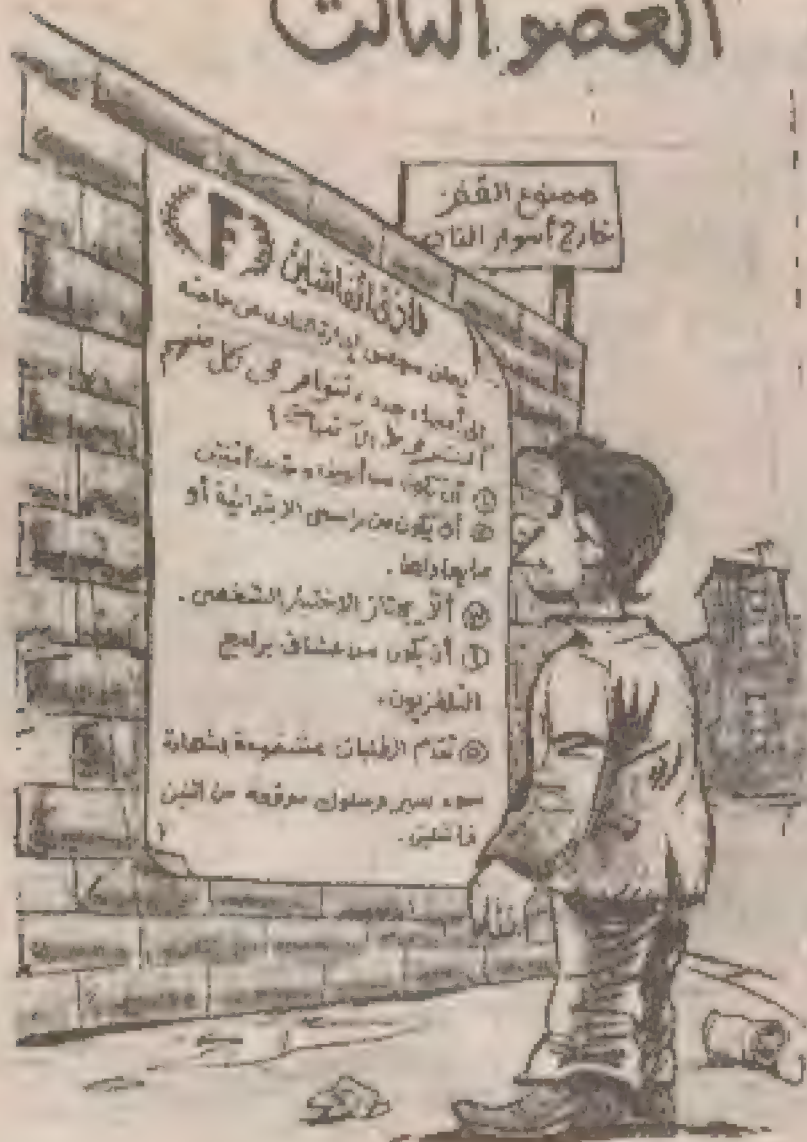 العضو الثالث
ممنوع القفز
خارج أسوار النادي
F
نادي الفاشلين
يعلن مجلس إدارة النادي عن حاجته
إلى أعضاء جدد، تتوافر في كل منهم
الشروط الآتية:
① أن يكون
② أن يكون من راسبي الابتدائية أو
ما يعادلها.
③ ألا يجتاز الاختبار الشخصي.
④ أن يكون من عشاق برامج
التلفزيون.
⑤ تقدم الطلبات مشفوعة بشهادة
سوء سير وسلوك موقعه من اثنين
فاشلين.